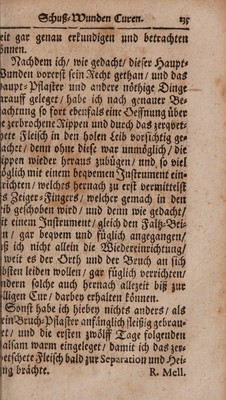 Schuß-Wunden Curen. 135
eit gar genau erkundigen und betrachten
können.
Nachdem ich / wie gedacht / dieser Haupt-
Wunden vorerst sein Recht gethan / und das
haupt-Pflaster und andere nöthige Dinge
arauff geleget / habe ich nach genauer Be-
achtung so fort ebenfals eine Oeffnung über
e zerbrochene Rippen und durch das zerqvet-
te Fleisch in den holen Leib vorsichtig ge-
acht / denn ohne diese war unmöglich / die
ippen wieder heraus zubügen / und so viel
öglich mit einem beqvemen Instrument ein-
richten / welches hernach zu erst vermittelst
s Zeiger-Fingers / welcher gemach in den
eib geschoben wird / und denn wie gedacht /
it einem Instrument / gleich den Faltz-Bei-
n / gar beqvem und füglich angegangen /
ß ich nicht allein die Wiedereinrichtung /
weit es der Orth und der Bruch an sich
lbsten leiden wollen / gar füglich verrichten /
ndern solche auch hernach allezeit biß zur
lligen Cur / darbey erhalten können.
Sonst habe ich hiebey nichts anders / als
ein Bruch-Pflaster anfänglich fleißig gebrau-
et / und die ersten zwölff Tage folgenden
alsam warm eingeleget / damit ich das zer-
etschete Fleisch bald zur Separation und Hei-
ng brächte. R. Mell.